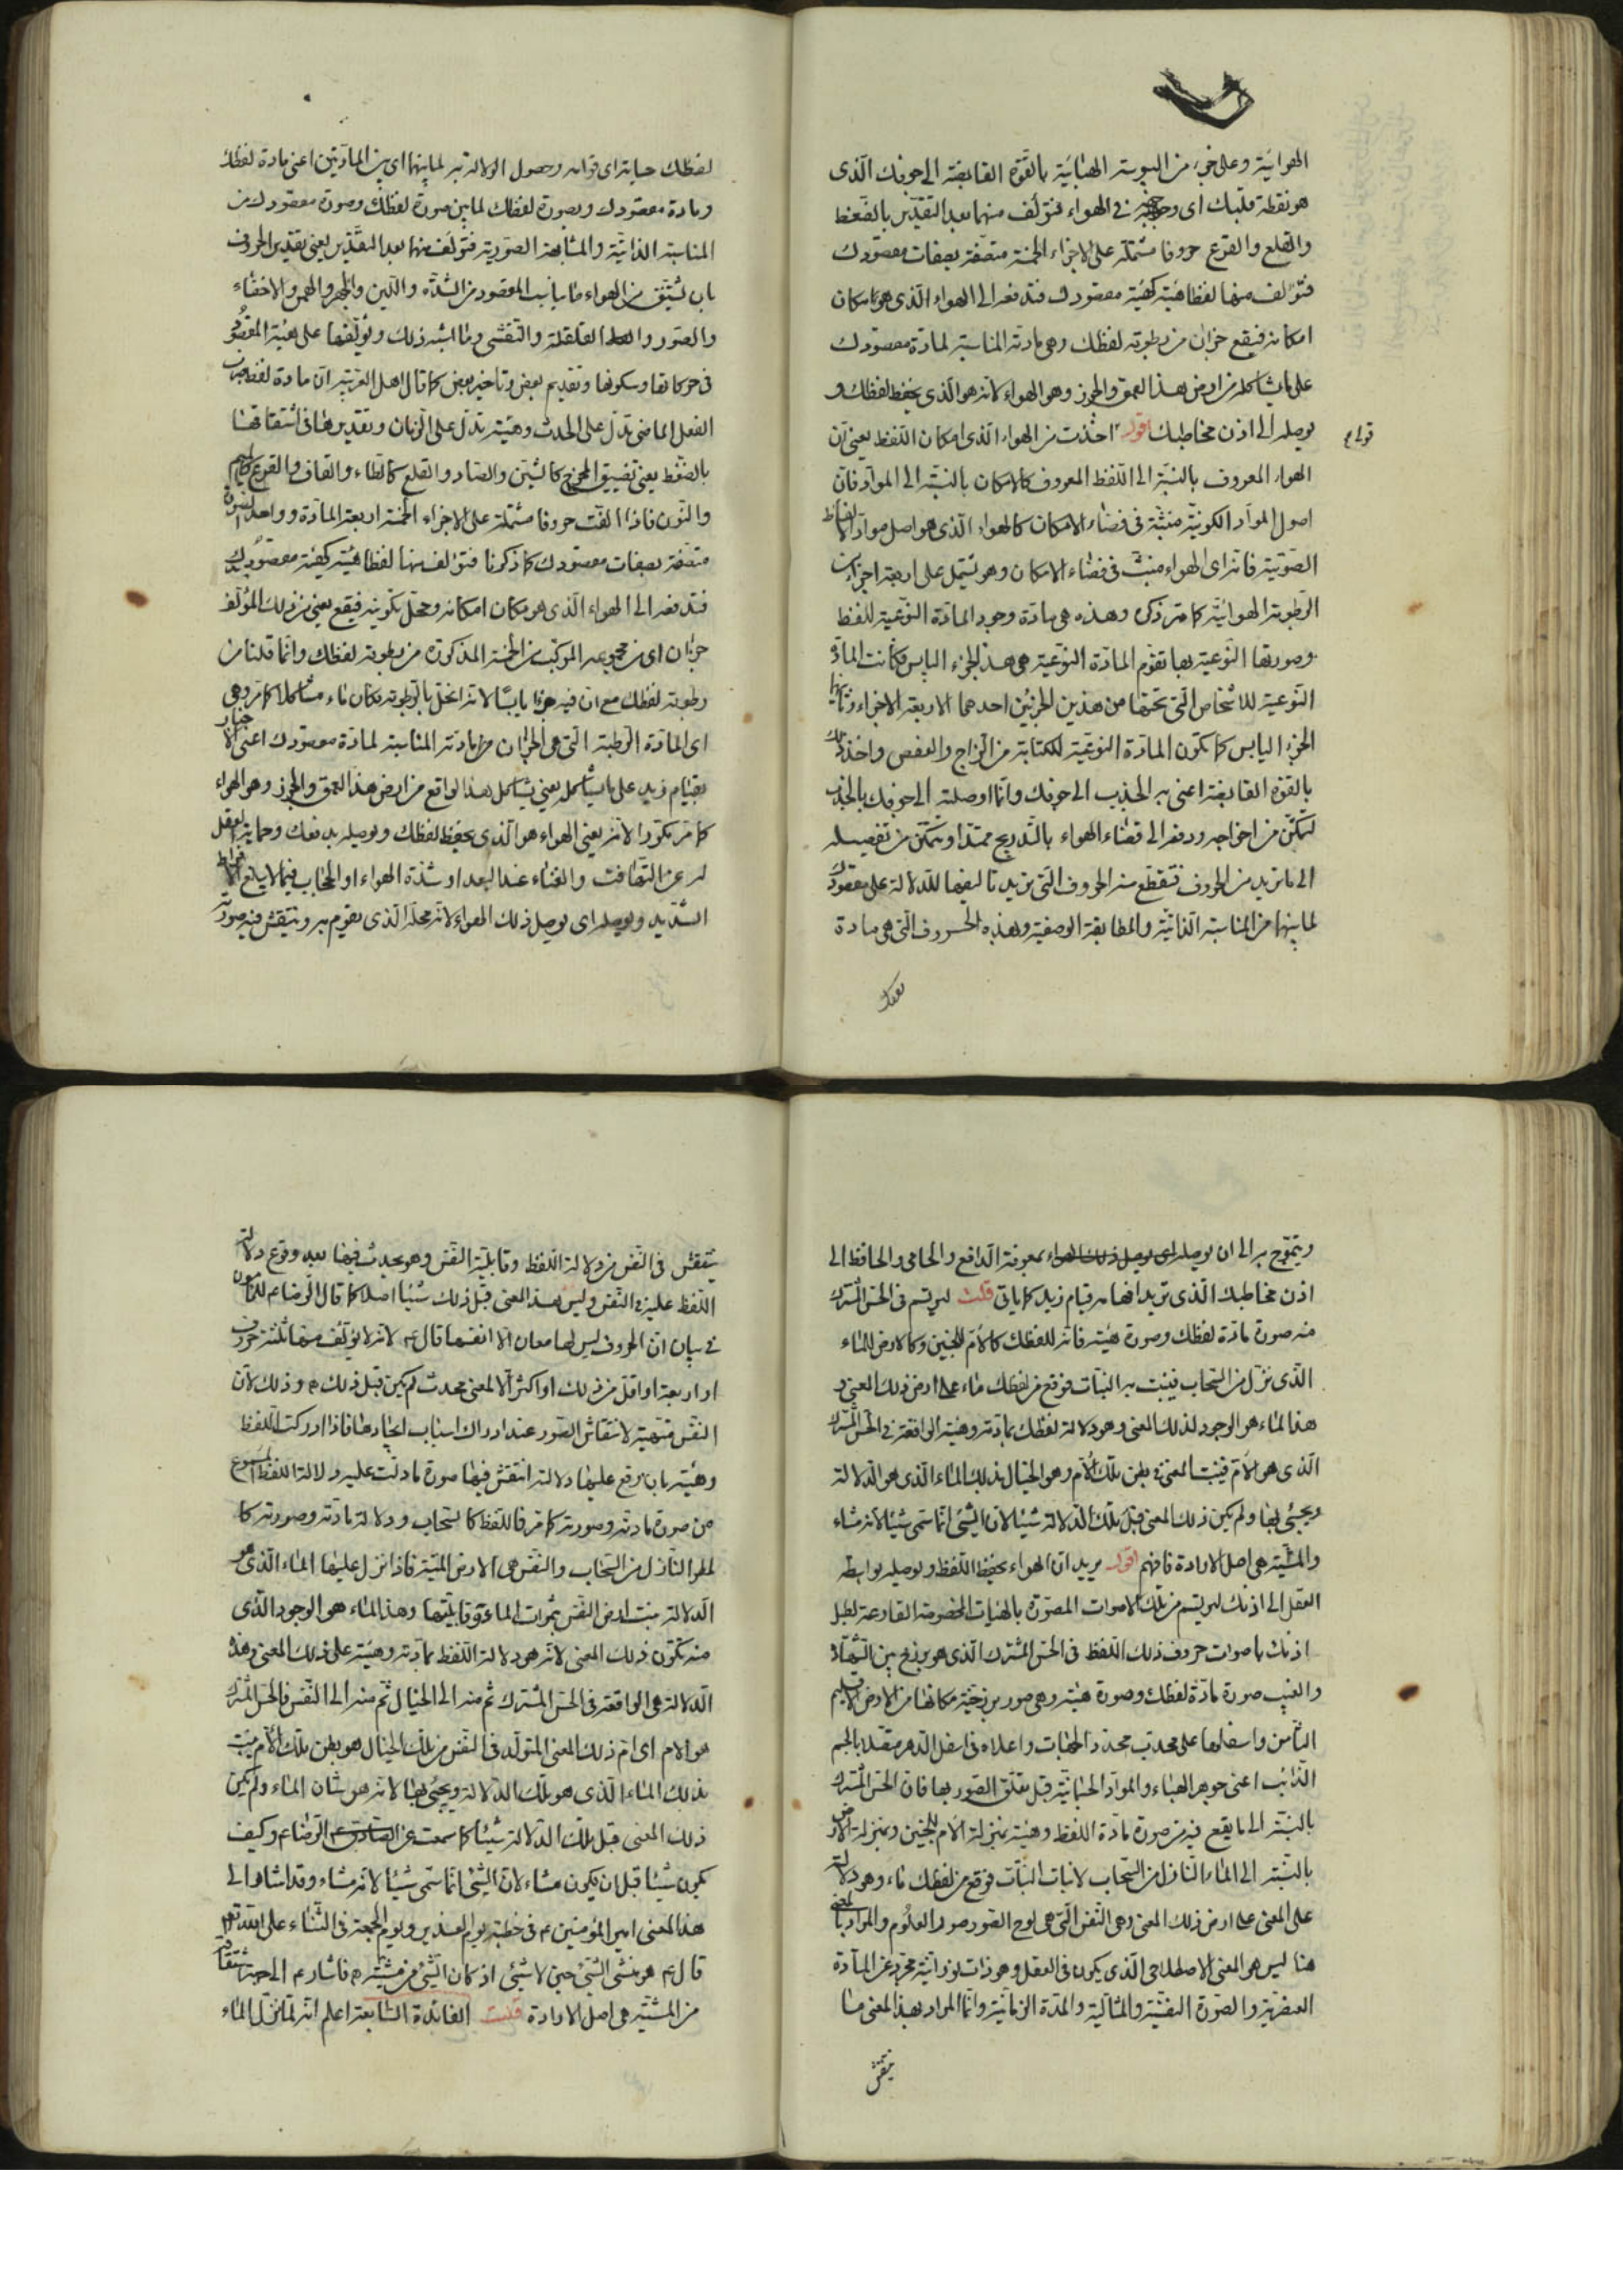 الهوائيّة وعلى جزء من اليبوسة الهبائيّة بالقوّة القابضة الى جوفك الّذى
هو نقطة قلبك اى وجهه فى الهواء فتؤلف منهما بعد التقدير بالضغط
والقلع والقرع حروفا مشتملة على الاجزاء الخمسة متصفة بصفات مقصودك
فتؤلف منها لفظا هيئته كهيئة مقصودك فتدفعه الى الهواء الّذى هو مكان
امكانه فيقع جزان من رطوبة لفظك وهى مادته المناسبة لمادة مقصودك
على ما يشاكله من ارض هذا العمق والجرز وهو الهواء لانه هو الّذى يحفظ لفظك و
يوصله الى اذن مخاطبك اقول اخذت من الهواء الّذى امكان اللّفظ يعنى انّ
قولى
الهواء المعروف بالنسبة الى اللّفظ المعروف كالامكان بالنسبة الى الموادّ فانّ
اصول الموادّ الكونيّة منبثّة فى فضاء الامكان كالهواء الّذى هو اصل موادّ الالفاظ
الصّوتيّة فانه اى الهواء منبثّ فى فضاء الامكان وهو يشتمل على اربعة اجزاء من
الرّطوبة الهوائيّة كما مرّ ذكره وهذه هى مادّة وجود المادّة النّوعيّة للفظ
وصورتها النّوعيّة بها تقوّم المادّة النوعيّة هى هذا الجزء اليابس فكانت المادّة
النّوعيّة للاشخاص الّتى تحتها من هذين الجزئين احدهما الاربعة الاجزاء وثانيهما
الجزء اليابس كما تكون المادّة النوعيّة للكتابة من الزاج والعفص واخذ ذلك
بالقوّة القابضة اعنى به الجذب الى جوفك وانّما اوصلته الى جوفك بالجذب
لتمكّن من اخراجه ودفعه الى فضاء الهواء بالتّدريج ممتدّا وتتمكّن من تفصيله
الى ما تريد من الحروف فتقطع منه الحروف الّتى تريد تاليفها للدلالة على مقصودك
لما بينها من المناسبة الذّاتيّة والمطابقة الوصفيّة وهذه الحروف الّتى هى مادة
لفظك
لفظك حياته اى قوامه وحصول الدلالة به لما بينهما اى بين المادّتين اعنى مادة لفظك
ومادة مقصودك وبصورة لفظك لما بين صورة لفظك وصورة مقصودك من
المناسبة الذّاتيّة والمشابهة الصّوريّة فتؤلّف منهما بعد التقدير يعنى تقدير الحروف
بان تشتقّ من الهواء ما يناسب المقصود من الشدّة واللّين والجهر والهمس والاخفاء
والصّور والقلقلة والتفشّى وما اشبه ذلك وتؤلّفها على هيئة المقصود
فى حركاتها وسكونها وتقديم بعض وتاخير بعض كما قال اهل العربيّة انّ مادة لفظ ضرب
الفعل الماضى تدلّ على الحدث وهيئته تدلّ على الزّمان وتقديرها فى اشتقاقها
بالضّغط يعنى تضييق المخرج كالشين والصاد والقلع كالطاء والقاف والقرع كالميم
والنّون فاذا الّفت حروفا مشتملة على الاجزاء الخمسة اربعة المادّة وواحد الصورة
متصّفة بصفات مقصودك كما ذكرنا فتؤلف منها لفظا هيئته كهيئة مقصودك
فتدفعه الى الهواء الّذى هو مكان امكانه ومحلّ تكوينه فيقع يعنى من ذلك المؤلّف
جزءان اى من مجموعه المركّب من الخمسة المذكورة من رطوبة لفظك وانّما قلنا من
رطوبة لفظك مع ان فيه جزءا يابسا لانّه انحلّ بالرّطوبة فكان ماء مشاكلا كما مرّ وهى
اى المادّة الرّطبة الّتى هى الجزءان من مادته المناسبة لمادّة مقصودك اعنى الاخبار
بقيام زيد على ما يشاكله يعنى يشاكل هذا الواقع من ارض هذا العمق والجرز وهو الهواء
كما مرّ مكرّرا لانّه يعنى الهواء هو الّذى يحفظ لفظك ويوصله بدفعك وحماية العقل
له عن التّهافت والفناء عند البعد او شدّة الهواء او الحجاب فيما لا يبلغ الافراط
الشّديد ويوصله اى يوصل ذلك الهواء لانّه محلّه الّذى يقوم به وينتقش فيه صورته
ويتموّج به الى ان يوصله اى يوصل ذلك الهواء بمعرفة الدّافع والحامى والحافظ الى
اذن مخاطبك الّذى تريد افهامه قيام زيد كما ياتى قلت ليرتسم فى الحسّ المشترك
منه صورة مادّة لفظك وصورة هيئته فانه للفظك كالامّ للجنين وكالارض للماء
الّذى نزل من السّحاب فينبت به النّبات فوقع من لفظك ماء على ارض ذلك المعنى و
هذا الماء هو الوجود لذلك المعنى وهو دلالة لفظك بمادّته وهيئته الواقعة فى الحسّ المشترك
الّذى هو الامّ فينبت المعنى فى بطن تلك الامّ وهو الخيال بذلك الماء الّذى هو الدّلالة
ويحيى بها ولم يكن ذلك المعنى قبل تلك الدّلالة شيئا لان الشّىء انّما سمّى شيئا لانه مشاء
والمشيّة هى اصل الارادة فافهم اقول يريد انّ الهواء يحفظ اللّفظ ويوصله بواسطة
العقل الى اذنك ليرتسم من تلك الاصوات المصوّرة بالهيات المخصوصة القارعة لطبل
اذنك باصوات حروف ذلك اللّفظ فى الحسّ المشترك الّذى هو برزخ بين الشّهادة
والغيب صورة مادّة لفظك وصورة هيئته وهى صور برزخيّة مكانها من الارض الاقليم
الثّامن واسفلها على محدّب محدّد الجهات واعلاه فى اسفل الدّهر متّصلا بالجسم
الذّائب اعنى جوهر الهباء والموادّ الجسمانيّة قبل تعلّق الصّور بها فان الحسّ المشترك
بالنّسبة الى ما يقع فيه من صورة مادّة اللّفظ وهيئته بمنزلة الامّ للجنين وبمنزلة الارض
بالنّسبة الى الماء النّازل من السّحاب لانبات النّبات فوقع من لفظك ماء وهو دلالة
على المعنى على ارض ذلك المعنى وهى النّفس الّتى هى لوح الصّور صور العلوم والمراد بالمعنى
هنا ليس هو المعنى الاصطلاحى الّذى يكون فى العقل وهو ذات نورانيّة مجرّدة عن المادّة
العنصريّة والصّورة النفسيّة والمثاليّة والمدّة الزمانيّة وانّما المراد بهذا المعنى ما
ينتقش
ينتقش فى النّفس من دلالة اللّفظ وقابليّة النّفس وهو يحدث فيها بعد وقوع دلالة
اللّفظ عليه فى النّفس وليس هذا المعنى قبل ذلك شيئا اصلا كما قال الرّضا ع للمامون
فى بيان انّ الحروف ليس لها معان الّا انفسها قال ع لانه لا يؤلّف منها ثلثة حروف
او اربعة او اقلّ من ذلك او اكثر الّا لمعنى محدث لم يكن قبل ذلك ه وذلك لانّ
النفس متهيّئة لانتقاش الصّور عند ادراك اسباب ايجادها فاذا ادركت اللّفظ
وهيئته بان وقع عليها دلالته انتقش فيها صورة ما دلّت عليه دلالة اللّفظ المسموع
من صورة مادته وصورته كما مرّ فاللّفظ كالسّحاب ودلالة مادّته وصورته كا
لمطر النّازل من السّحاب والنّفس هى الارض الميّتة فاذا نزل عليها الماء الّذى هو
الدّلالة نبت ارض النّفس بثمرات المادّة وقابليّتها وهذا الماء هو الوجود الّذى
منه تكوّن ذلك المعنى لانّه هو دلالة اللّفظ بمادّته وهيئته على ذلك المعنى وهذه
الدّلالة هى الواقعة فى الحسّ المشترك ثم منه الى الخيال ثمّ منه الى النّفس فالحسّ المشترك
هو الامّ اى امّ ذلك المعنى المتولّد فى النّفس من تلك الخيال هو بطن تلك الامّ ينبت
بذلك الماء الّذى هو تلك الدّلالة ويحيى بها لانّه هو شان الماء ولم يكن
ذلك المعنى قبل تلك الدّلالة شيئا كما سمعت عن الصادق ع الرّضا ع وكيف
يكون شيئا قبل ان يكون مشاء لانّ الشّىء انّما سمّى شيئا لانّه مشاء وقد اشار الى
هذا المعنى امير المؤمنين ع فى خطبة يوم الغدير ويوم الجمعة فى الثّناء على اللّه تعالى
قال ع هو منشئ الشّىء حين لا شىء اذ كان الشّىء من مشيّته ه فاشار ع الى جهة اشتقاقه
من المشيّة هى اصل الارادة قلت الفائدة السّابعة اعلم انّه لمّا نزل الماء